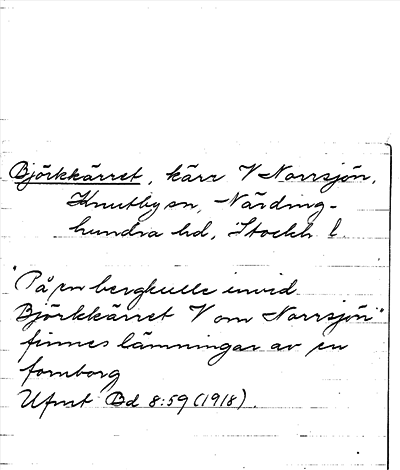 Björkkärret, kärr V Norrsjön,
Knutby sn, Närding-
hundra hd, Stockh l
"På en bergkulle invid
Björkkärret V om Norrsjön"
finnes lämningar av en
fornborg
Ufmt Bd 8:59 (1918).